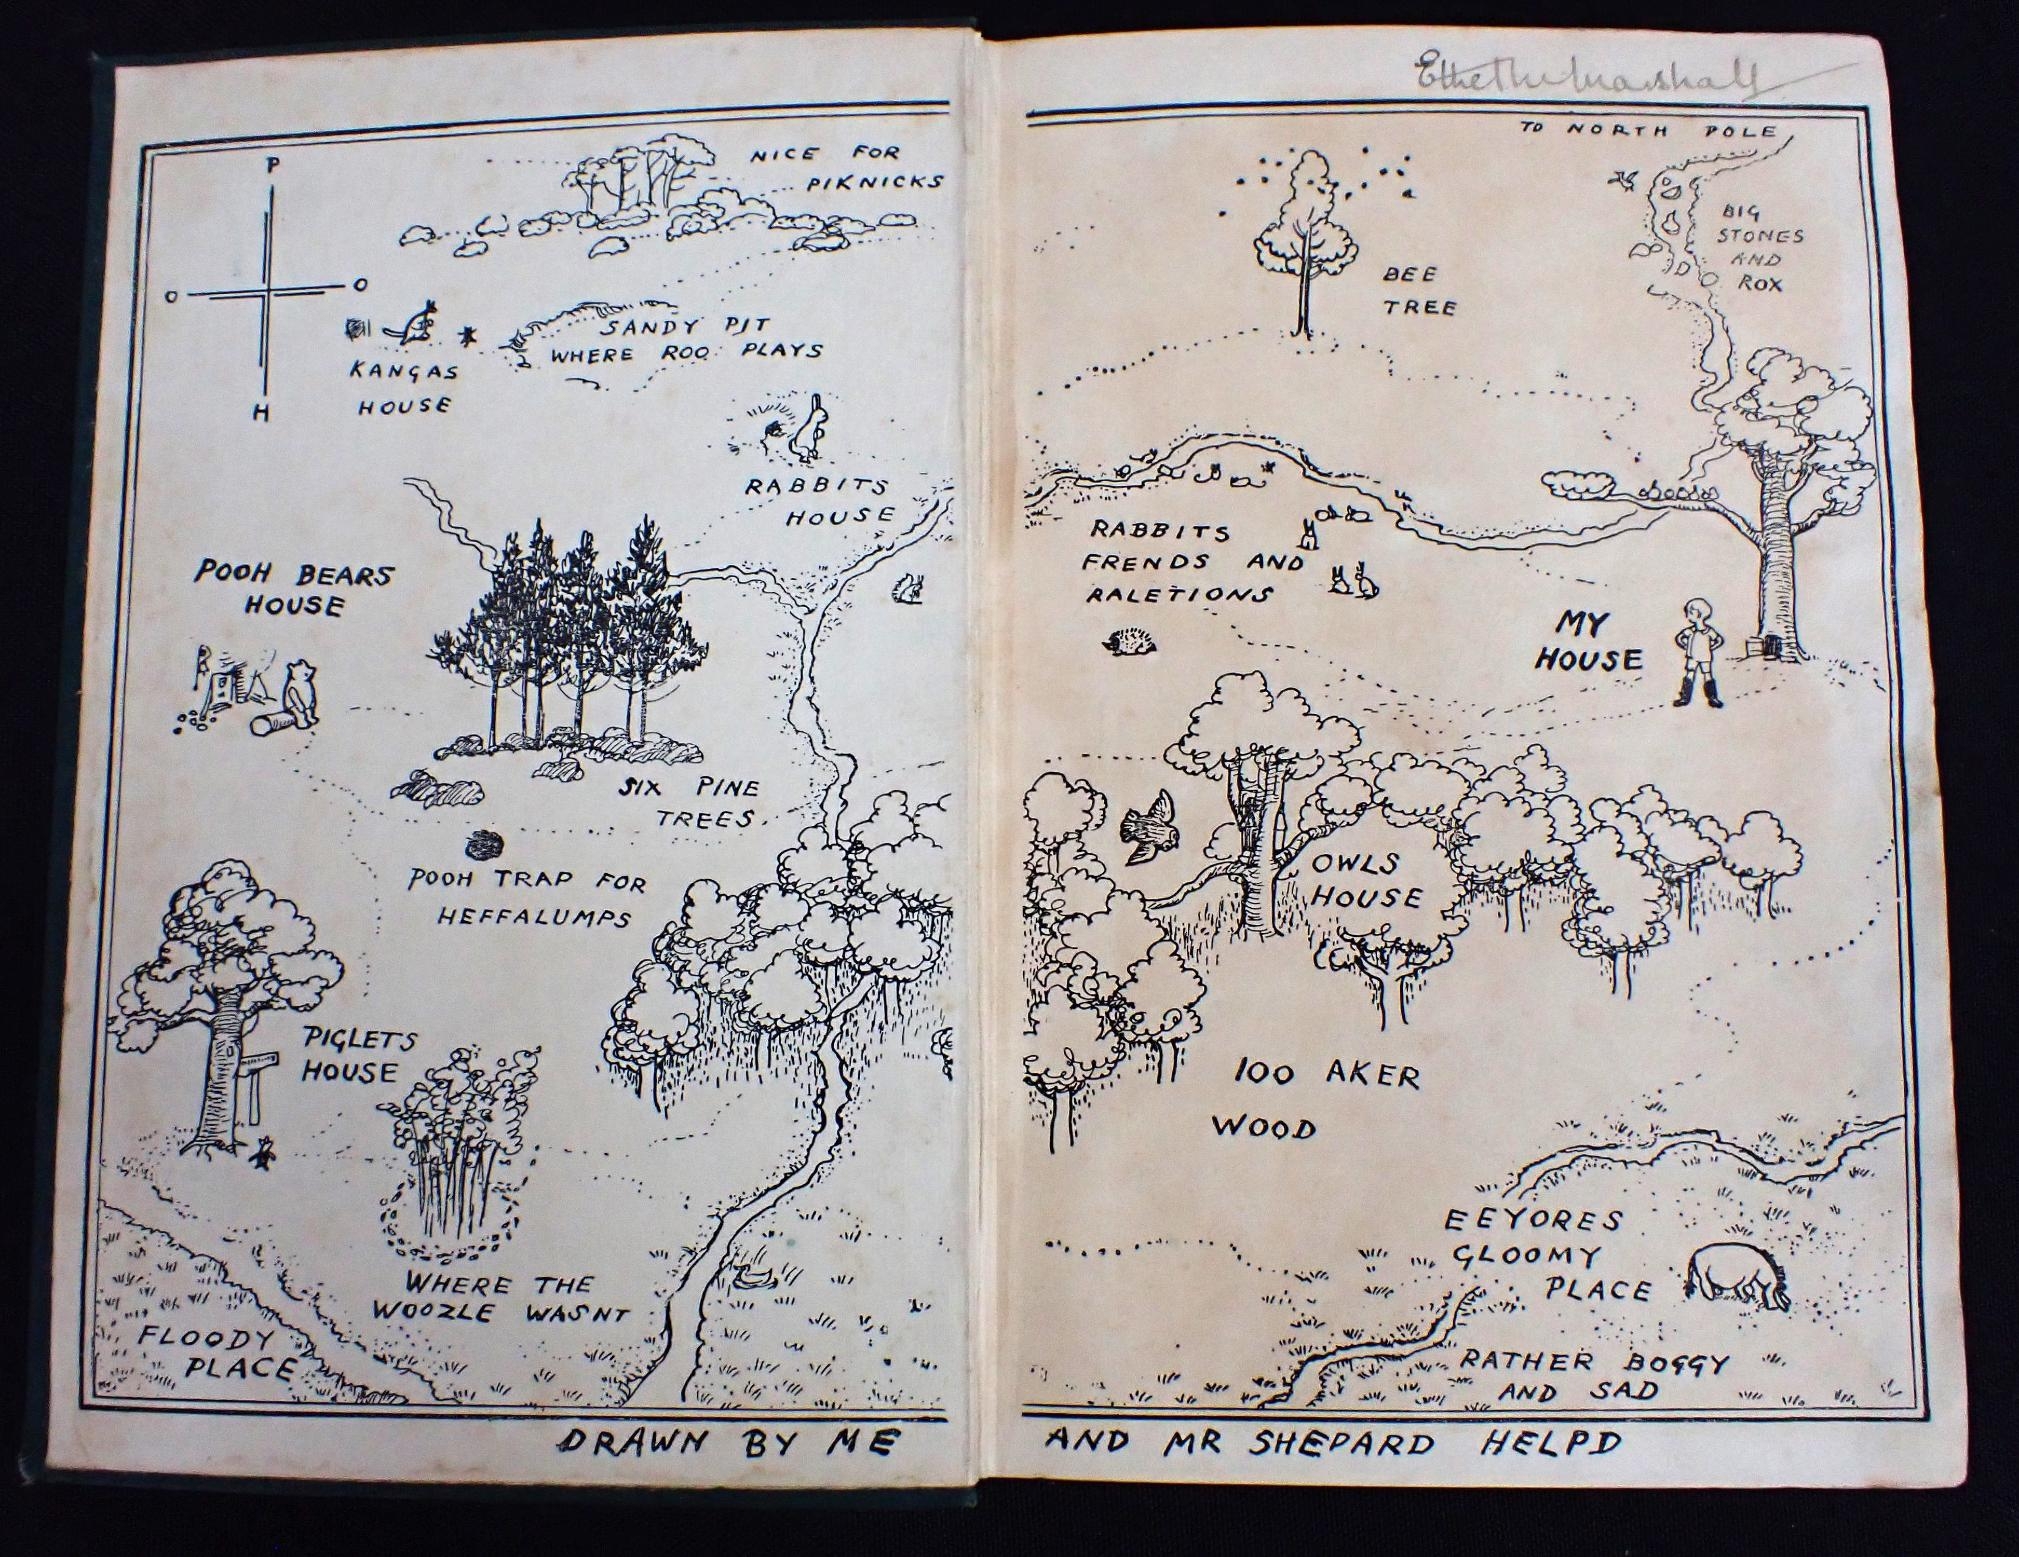 P
NICE FOR
PIKNICKS
O
O
SANDY PIT
WHERE ROO PLAYS
KANGAS
HOUSE
H
RABBITS
HOUSE
POOH BEARS
HOUSE
SIX PINE
TREES.
POOH TRAP FOR
HEFFALUMPS
PIGLETS
HOUSE
WHERE THE
WOOZLE WASNT
FLOODY
PLACE
DRAWN BY ME
Marshall
TO NORTH POLE
BIG
STONES
AND
ROX
BEE
TREE
RABBITS
FRENDS AND
RALETIONS
MY
HOUSE
OWLS
HOUSE
100 AKER
WOOD
EEYORES
GLOOMY
PLACE
RATHER BOGGY
AND SAD
AND MR SHEPARD HELPD